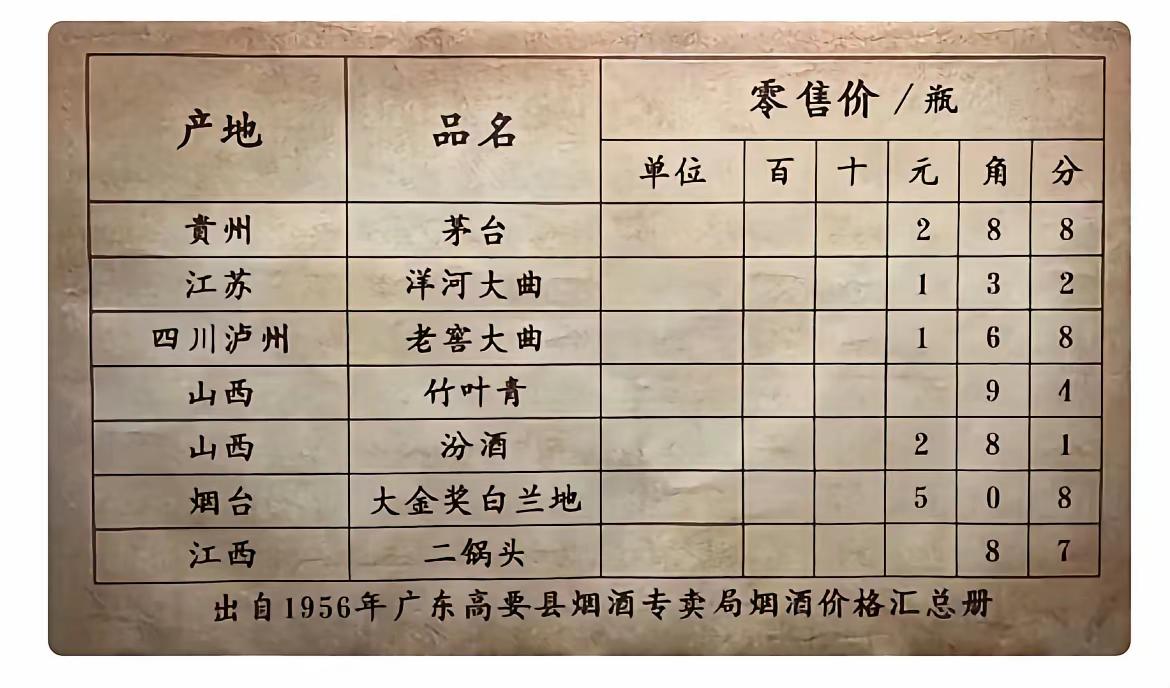 产地 品名 零售价/瓶
单位 百 十 元 角 分
貴州 茅台 2 8 8
江苏 洋河大曲 1 3 2
四川泸州 老窖大曲 1 6 8
山西 竹叶青 9 4
山西 汾酒 2 8 1
烟台 大金奖白兰地 5 0 8
江西 二锅头 8 7
出自1956年广东高要县烟酒专卖局烟酒价格汇总册